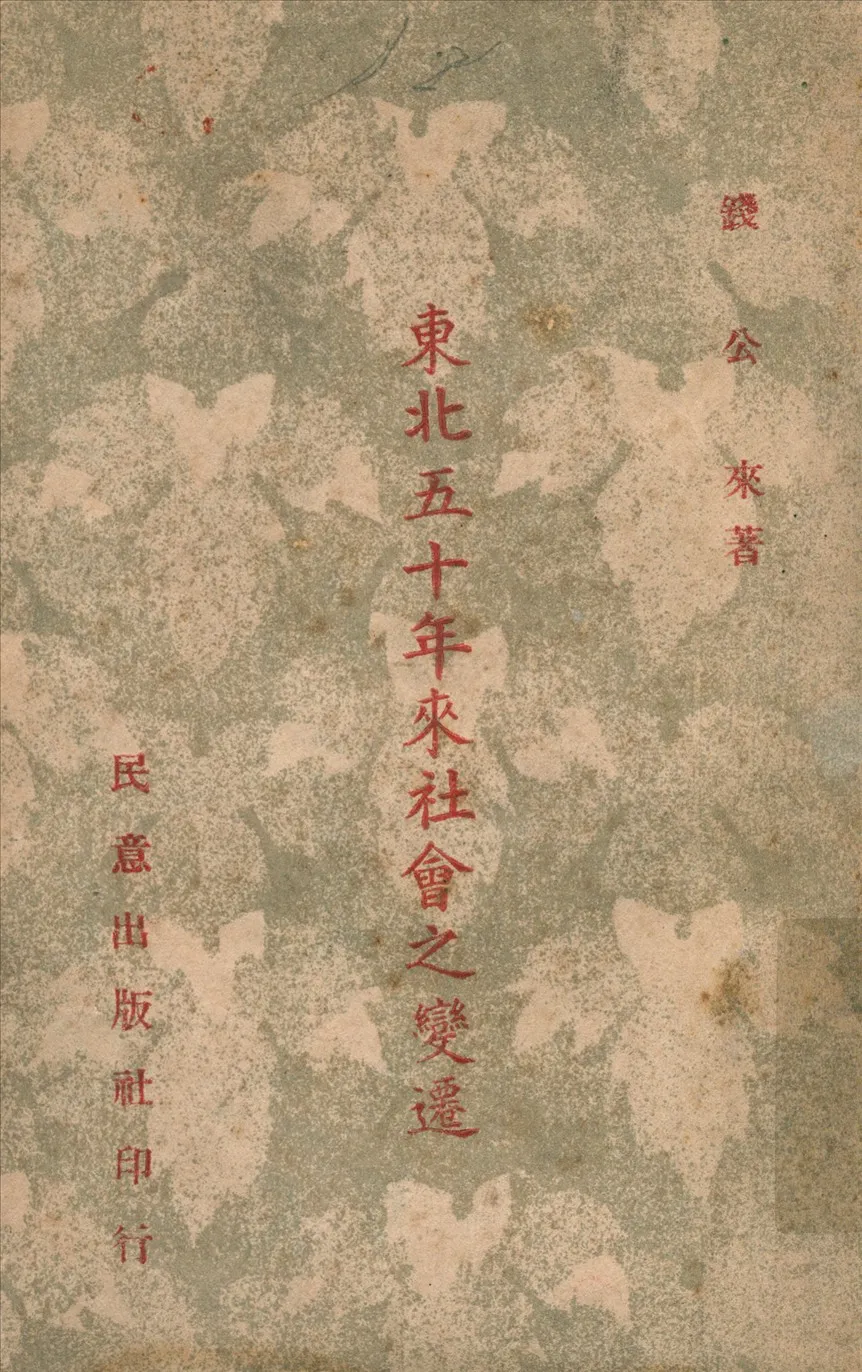 錢公來著
東北五十年來社會之變遷
民意出版社印行